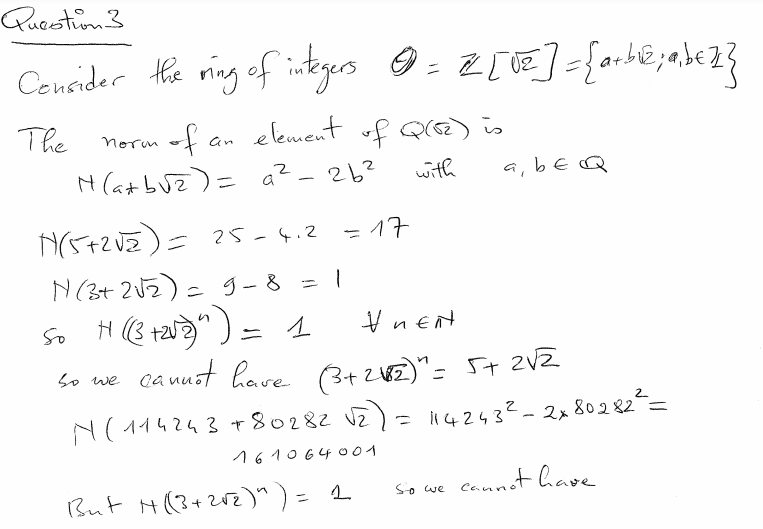 Question 3
Consider the ring of integers O = Z[√2] = {a+b√2; a,b∈Z}
The norm of an element of Q(√2) is
N(a+b√2) = a² - 2b² with a, b ∈ Q
N(5+2√2) = 25 - 4.2 = 17
N(3+2√2) = 9 - 8 = 1
so N((3+2√2)ⁿ) = 1 ∀ n ∈ N
so we cannot have (3+2√2)ⁿ = 5+2√2
N(114243 + 80282 √2) = 114243² - 2×80282² =
161064001
But N((3+2√2)ⁿ) = 1 so we cannot have